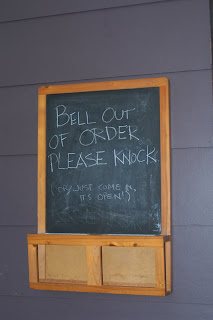 BELL OUT
OF ORDER
PLEASE KNOCK
(OR JUST COME IN,
IT'S OPEN!)